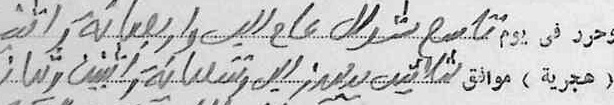 وحرر فى يوم تاسع شوال عام الف واربعمائة واثنا
( هجرية ) موافق ثلاثين يوليو الف وتسعمائة واثنين وثمانين